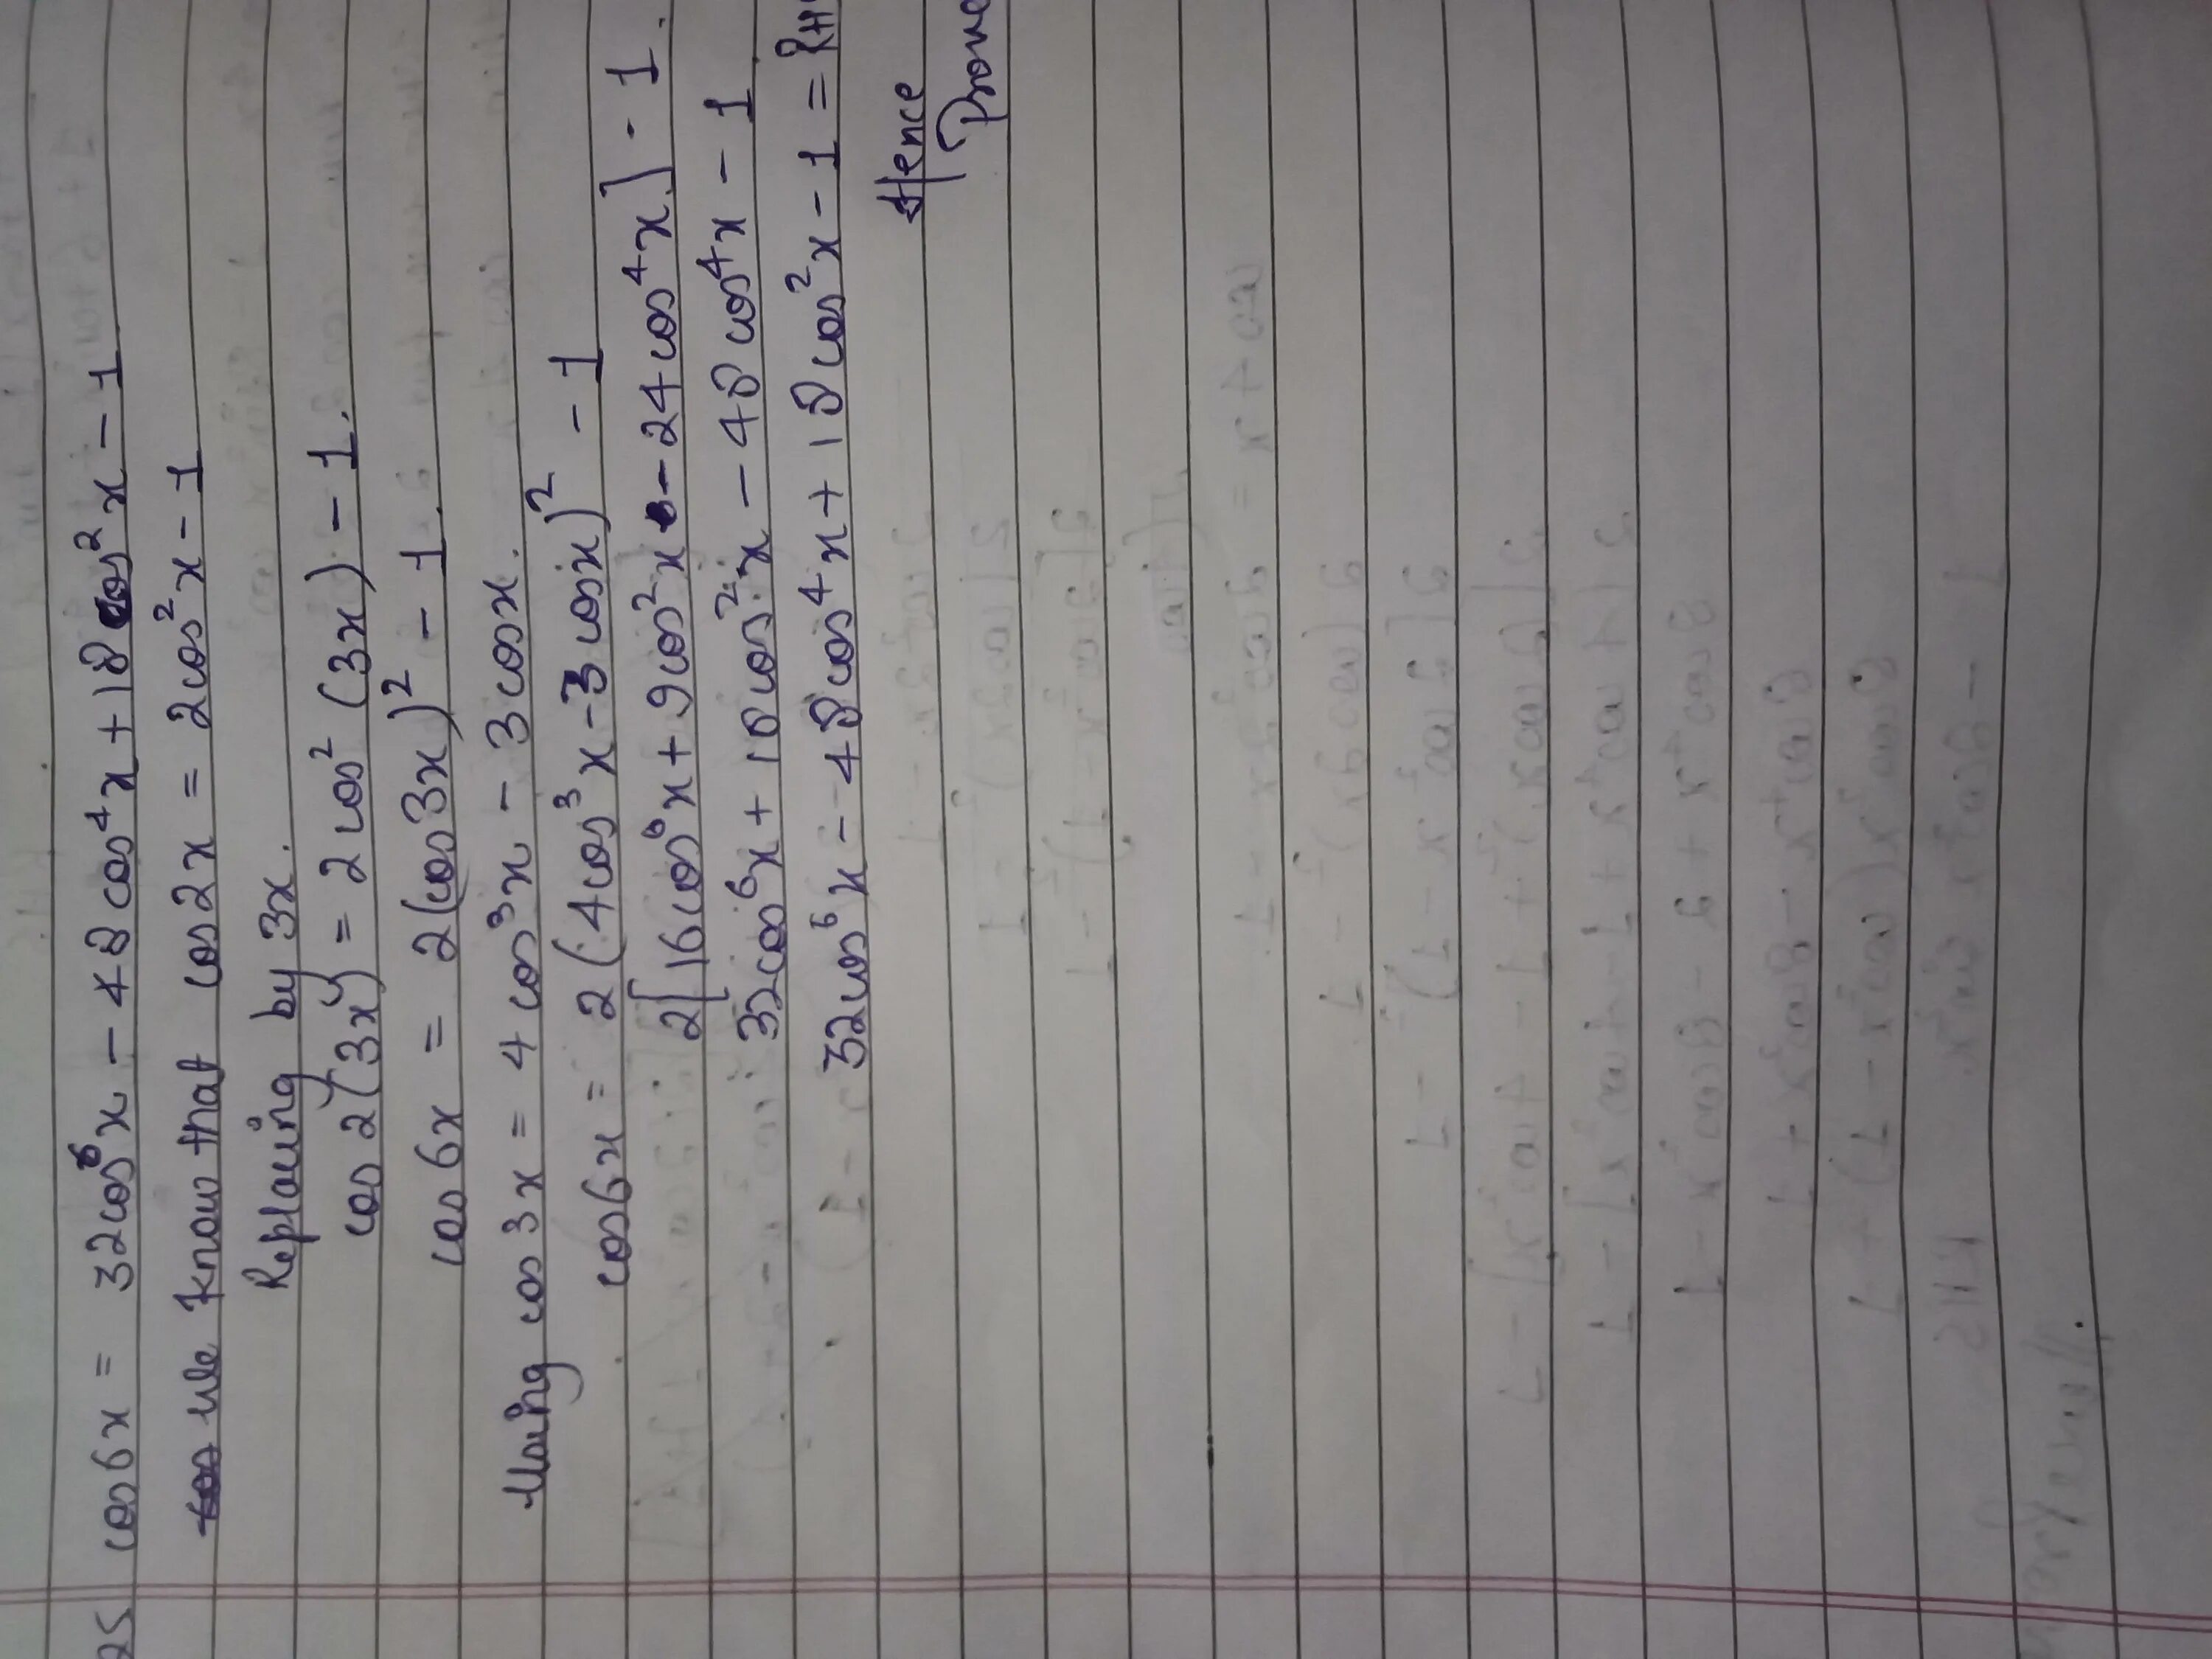 25 cos6x = 32cos⁶x - 48 cos⁴x + 18 cos²x - 1
we know that cos2x = 2cos²x - 1
Replacing by 3x.
cos 2(3x) = 2 cos² (3x) - 1.
cos 6x = 2(cos3x)² - 1.
Using cos 3x = 4 cos³x - 3 cosx.
cos6x = 2(4cos³x - 3 cosx)² - 1
2[16cos⁶x + 9cos²x - 24cos⁴x] - 1.
32cos⁶x + 18cos²x - 48cos⁴x - 1
32cos⁶x - 48cos⁴x + 18cos²x - 1 =
Hence
Prove